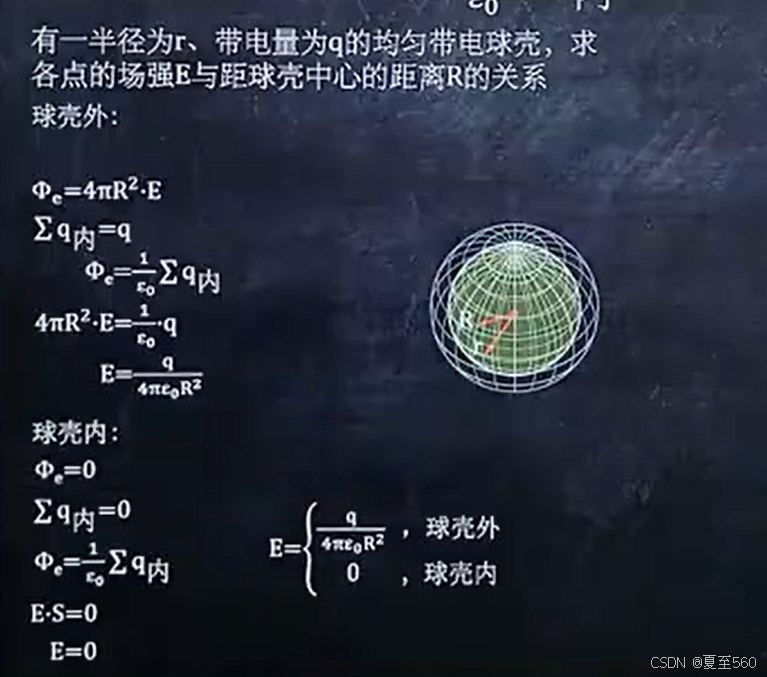 有一半径为r、带电量为q的均匀带电球壳，求
各点的场强E与距球壳中心的距离R的关系
球壳外：
Φₑ=4πR²·E
∑q内=q
Φₑ=1/ε₀ ∑q内
4πR²·E=1/ε₀·q
E=q/4πε₀R²
R
球壳内：
Φₑ=0
∑q内=0
Φₑ=1/ε₀ ∑q内
E·S=0
E=0
E={ q/4πε₀R² ，球壳外
0 ，球壳内
CSDN @夏至560